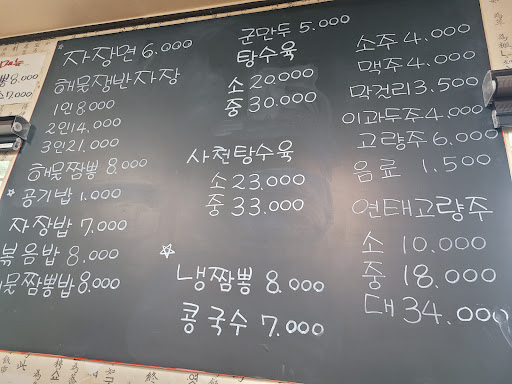 ☆ 자장면 6.000
해물쟁반자장
1인 8.000
2인 14.000
3인 21.000
해물짬뽕 8.000
☆ 공기밥 1.000
자장밥 7.000
볶음밥 8.000
물짬뽕밥 8.000
군만두 5.000
탕수육
소 20.000
중 30.000
사천탕수육
소 23.000
중 33.000
☆ 냉짬뽕 8.000
콩국수 7.000
소주 4.000
맥주 4.000
막걸리 3.500
이과두주 4.000
고량주 6.000
음료 1.500
연태고량주
소 10.000
중 18.000
대 34.000